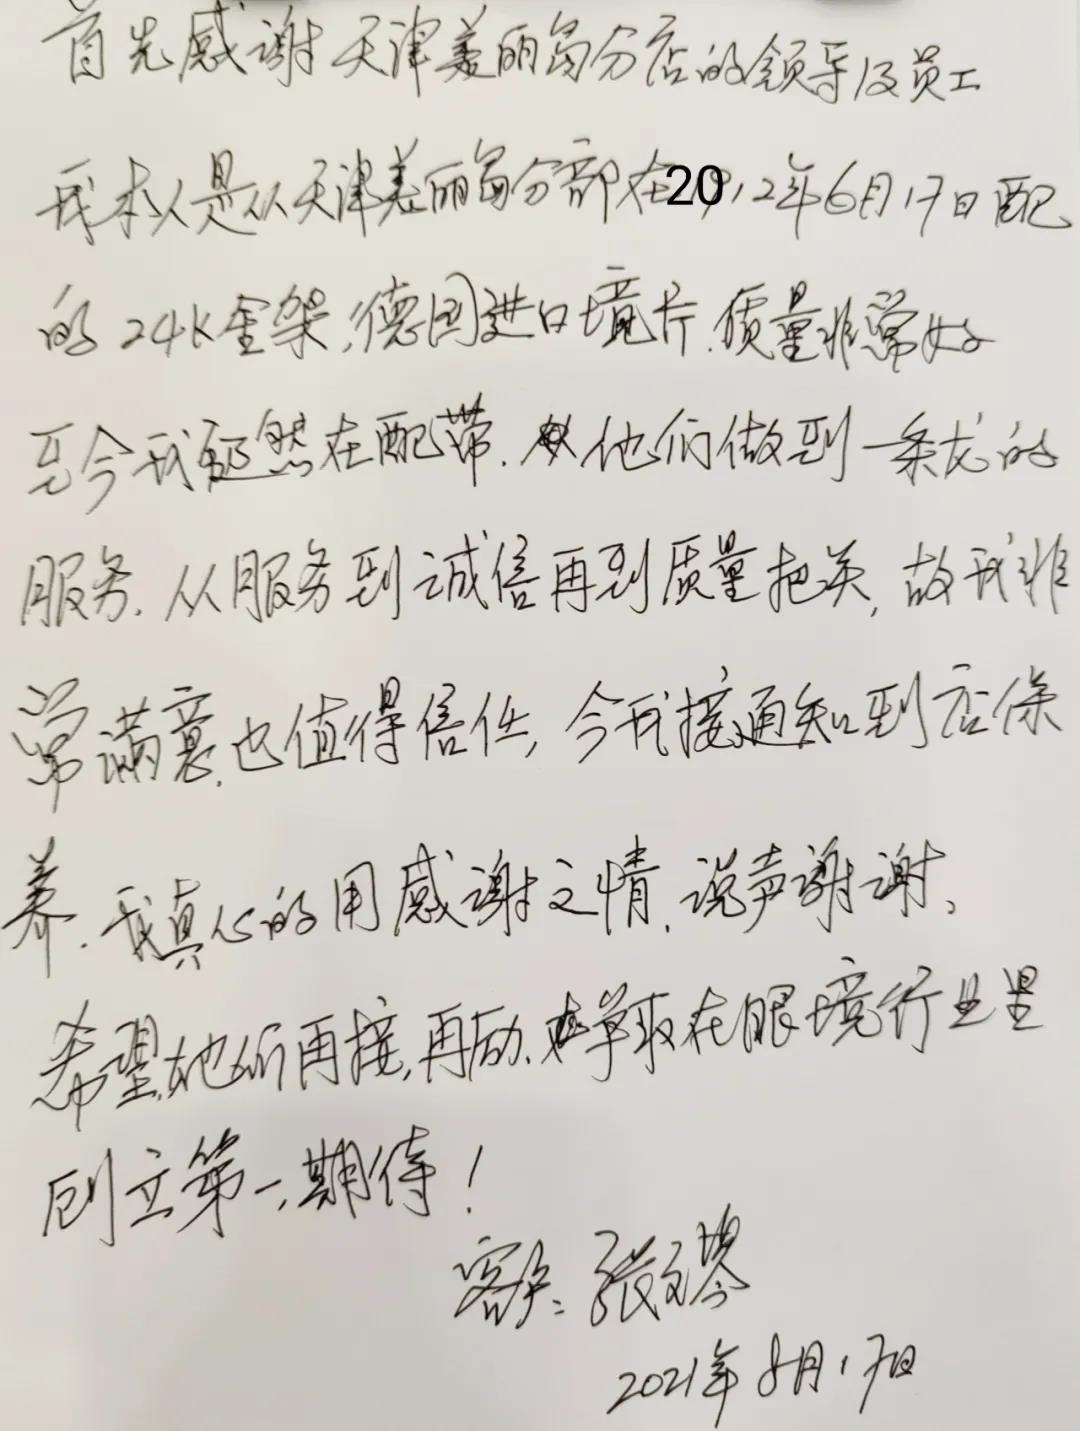 首先感谢天津美丽岛分店的领导及员工
我本人是从天津美丽岛分部在2012年6月17日配
的24K金架,德国进口境片.质量非常好
至今我延然在配带.他们做到一条龙的
服务.从服务到诚信再到质量把关,故我非
常满意,也值得信任,今我接通知到店保
养.我真心的用感谢之情,说声谢谢、
希望,她们再接,再励、争取在眼境行业里
创立第一,期待!
客户:张文琴
2021年8月17日